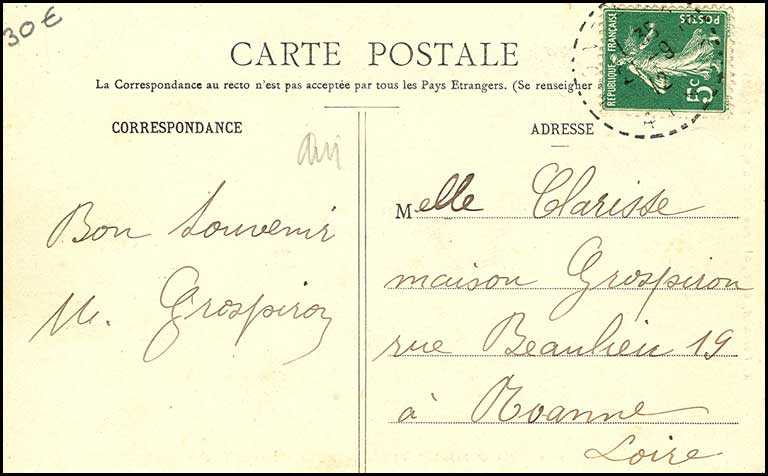 30€
CARTE POSTALE
La Correspondance au recto n'est pas acceptée par tous les Pays Etrangers. (Se renseigner
CORRESPONDANCE
Bon souvenir
M. Grospiron
ADRESSE
Melle Clarisse
maison Grospiron
rue Beaulieu 19
à Roanne
Loire
REPUBLIQUE FRANÇAISE
POSTES
5c